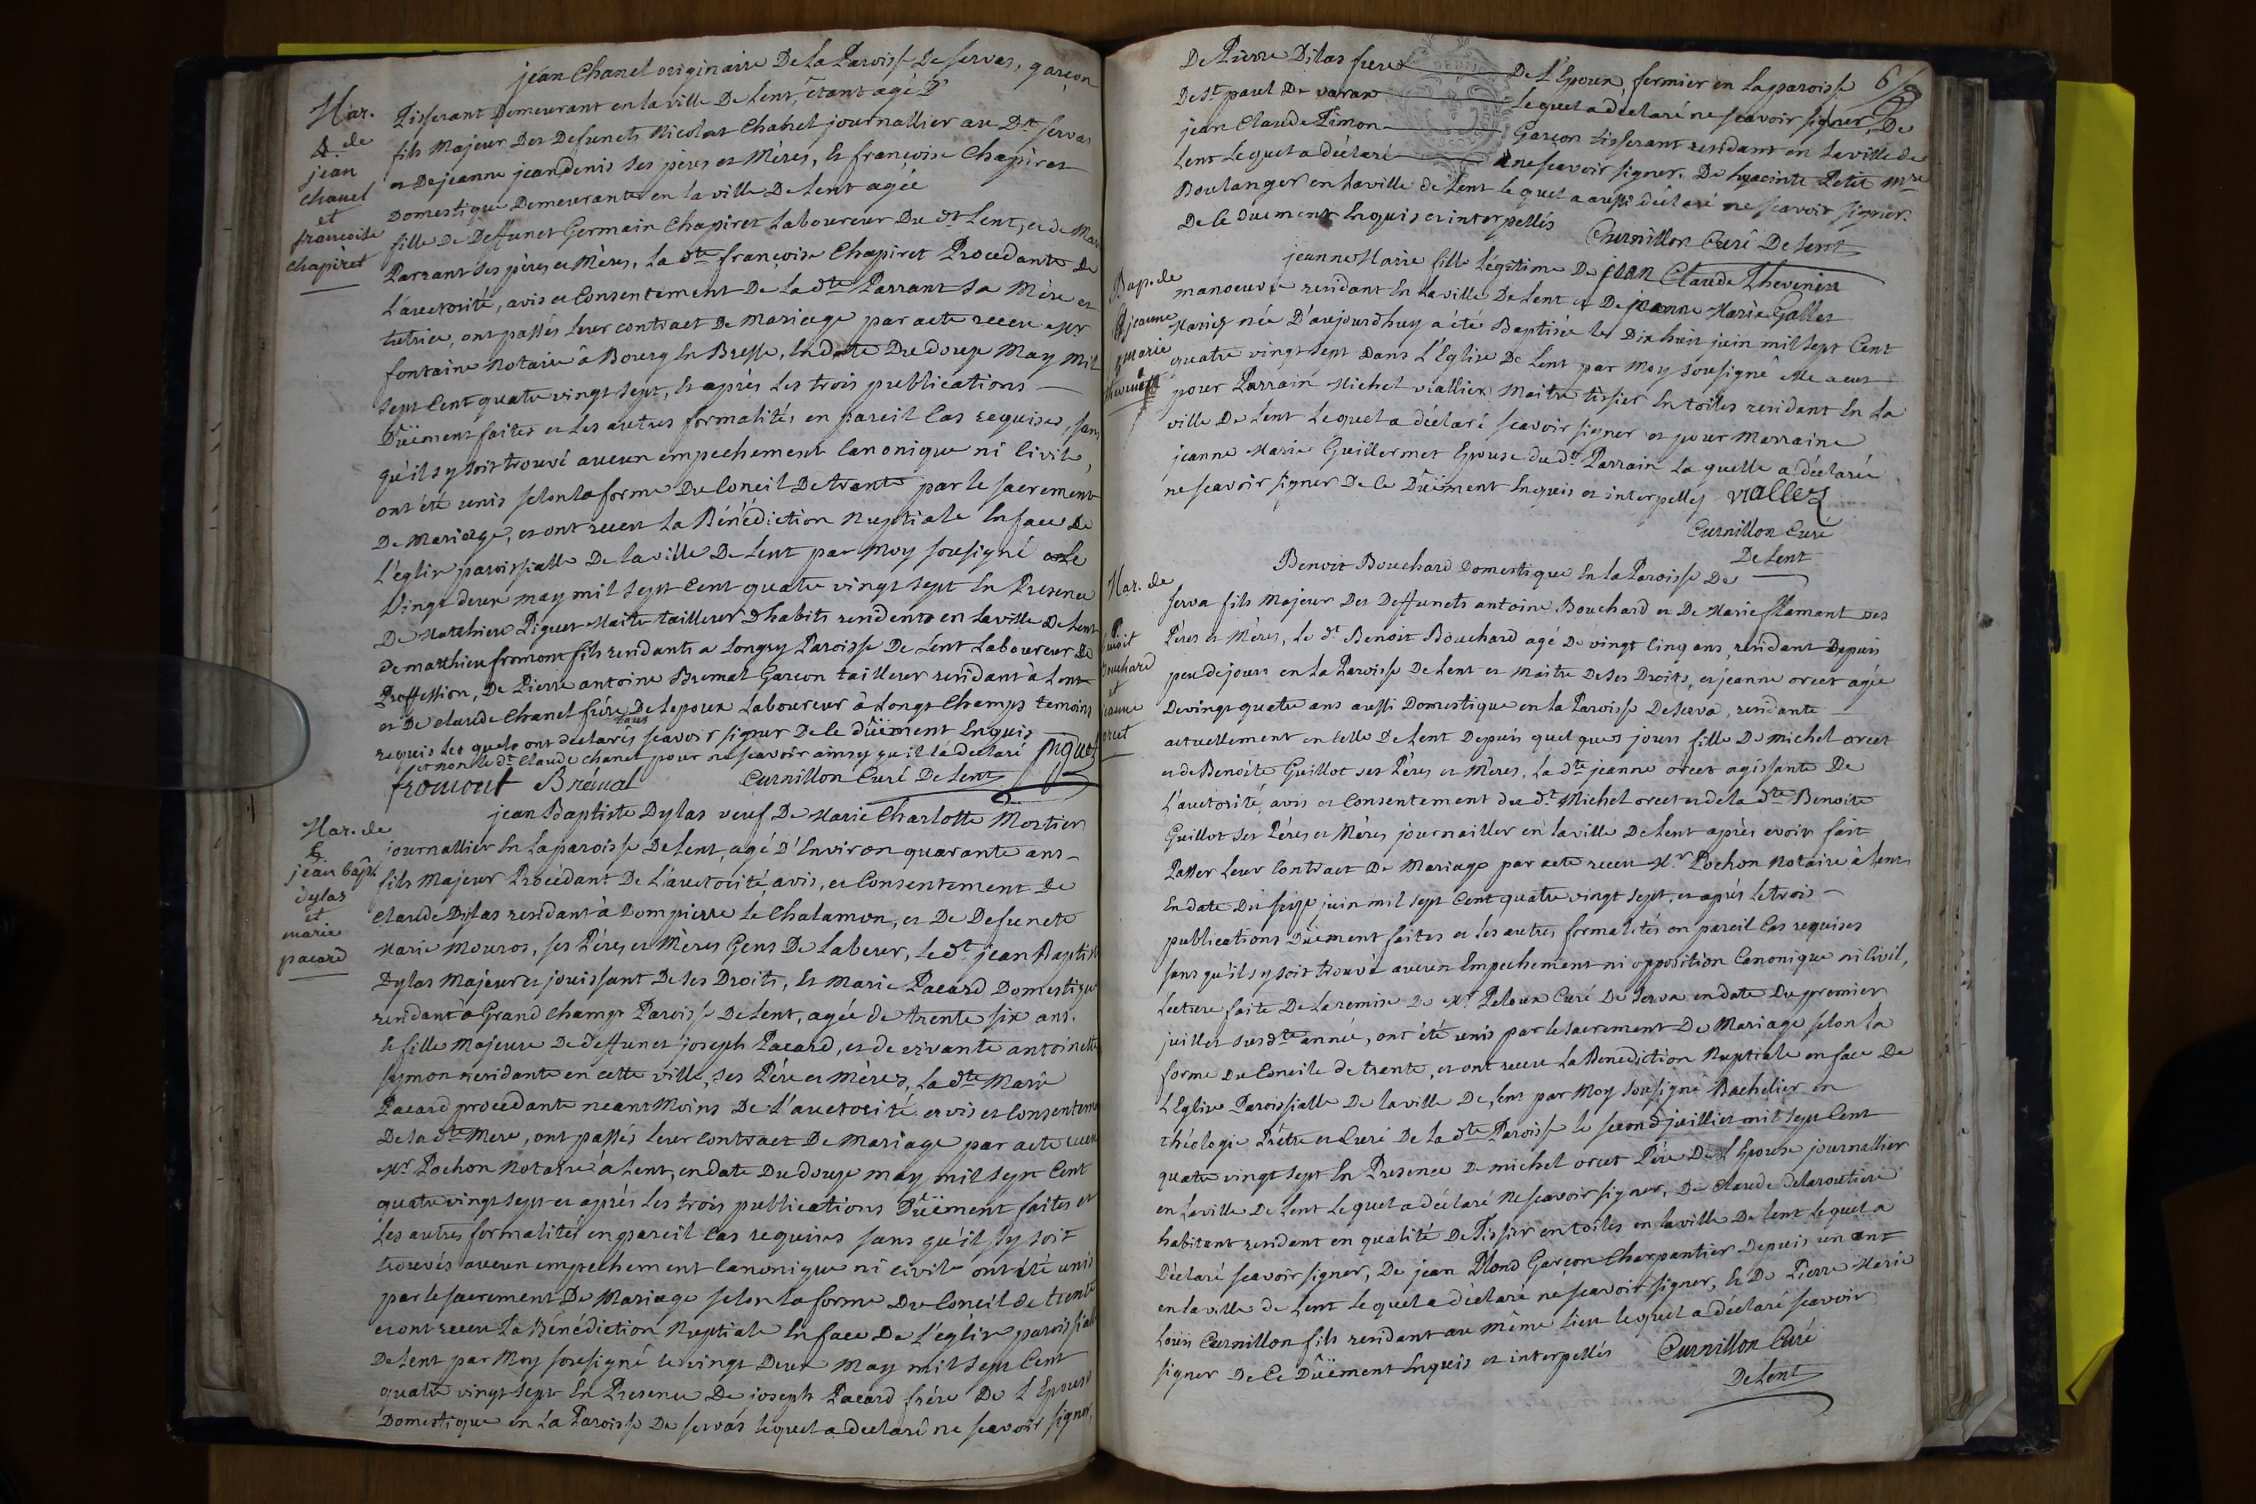 jean Chanel originaire De La Paroisse De servas, garçon
Mar.
de
jean
chanel
et
francoise
chapiret
Tisserant Demeurant en la ville De Lent, étant agé D
fils Majeur Des Defunets Nicolas Chanel journallier au Dt servas
et De jeanne jeandenis ses pères et Mères, Et françoise Chapiret
Domestique Demeurante en la ville De Lent agée
fille De Deffunet Germain Chapiret Laboureur Du dt Lent, et de Marie
Parrant ses pères et Mères, La dte françoise Chapiret Procedante De
L'auctorité, avis et Consentement De La dte Parrant sa Mère et
tutrice, ont passés Leur contract De Mariage par acte receu Mr
fontaine Notaire à Bourg En Bresse, En date Du douze May Mil
sept Cent quatre vingt sept, Et après Les trois publications
Düement faites et Les autres formalités en pareil Cas requises, sans
qu'il sy soit trouvé aucun empechement Canonique ni Civile,
ont été unis selon la forme Du Conceil De trante par le sacrement
De Mariage, et ont receu La Bénédiction Nuptiale En face De
L'eglise paroissialle De la ville De Lent par Moy sousigné Le
Vingt deux may mil sept Cent quatre vingt sept En Presence
De Matthieu Piquet Maitre tailleur D'habits residents en La ville De Lent
De matthieu fromont fils residants a Longry Paroisse De Lent Laboureur De
Proffession, De Pierre antoine Bremal Garçon tailleur residant à Lent
et De claude Chanel frére De Lepoux Laboureur à Longs Champs temoins
requis Les quels ont tous declarés scavoir signer De Ce düement Enquis
et non le dt Claude chanel pour ne scavoir ainsy qu'il la declaré
piquet
fromont Brémal Curnillon Curé De Lent
Mar. de
jean bapt.
dylas
et
marie
pacard
jean Baptiste Dylas veuf De Marie Charlotte Mortier
journallier En La paroisse De Lent, agé D'Environ quarante ans
fils Majeur Procédant De L'auctorité, avis, et Consentement De
Claude Dylas residant à Dompierre Le Chalamon, et De Defuncte
Marie Mouros, ses Pères et Mères Gens De Labeur, Le dt jean Baptiste
Dylas Majeur et jouissant De ses Droits, Et Marie Pacard Domestique
residant à Grand Champs Paroisse De Lent, agée de trente six ans.
Et fille Majeure De deffunet joseph Pacard, et de vivante antoinette
symon residante en cette ville, ses Père et Mères, La dte Marie
Pacard procedante neant Moins De L'auctorité avis et Consentement
De la dte Mere, ont passés Leur contract De Mariage par acte receu
Mr Pochon Notaire à Lent, en date Du douze may mil sept Cent
quatre vingt sept et après Les trois publications Düement faites et
Les autres formalités en pareil Cas requises sans qu'il sy soit
trouvés aucun empechement Canonique ni civile ont été unis
par le sacrement De Mariage selon la forme Du Conceil de trente
et ont receu La Bénédiction Nuptiale En face De L'église paroissialle
De Lent par Moy sousigné le vingt Deux May mil sept Cent
quatre vingt sept En Presence De joseph Pacard frére De L'Epouse
Domestique en La Paroisse De servas lequel a declaré ne scavoir signer,
De Pierre Dilas frere De L'Epoux, fermier en La paroisse
De St paul De varax Le quel a déclaré ne scavoir signer, De
jean Claude Timon Garçon tisserant residant en La ville de
Lent Le quel a déclaré ne scavoir signer. De hyacinte Petit Mre
Boulanger en La ville de Lent le quel a aussi déclaré ne scavoir signer.
De Ce Duement Enquis et interpellés Curnillon Curé De Lent
Bap. de
jeanne
marie
thevenin
jeanne Marie fille Légitime De jean Claude Thevenin
manoeuvre residant En La ville De Lent et De jeanne Marie Gallet
Mariés née D'aujourdhuy a été Baptisée le Dix huit juin mil sept Cent
quatre vingt sept Dans L'Eglise De Lent par Moy sousigné elle a eut
pour Parrain Michel viallier Maitre tissier En toiles residant En La
ville De Lent Le quel a déclaré scavoir signer et pour Marraine
jeanne Marie Guillermet Epouse du dt Parrain La quelle a déclarée
ne scavoir signer De Ce Düement Enquis et interpellés vialler
Curnillon Curé
De Lent
Mar. de
Benoit
Bouchard
et
jeanne
orcet
Benoit Bouchard Domestique En la Paroisse De
serva fils Majeur Des Deffunets antoine Bouchard et De Marie flamant ses
Pères et Mères, Le dt Benoit Bouchard agé De vingt Cinq ans, residant Depuis
peu de jours en La Paroisse De Lent et Maitre De ses Droits, et jeanne orcet agée
De vingt quatre ans aussi Domestique en La Paroisse De serva, residante
actuellement en Celle De Lent Depuis quelques jours fille De michel orcet
et de Benoite Guillot ses Péres et Mères. La dte jeanne orcet agissante De
L'auctorité, avis et Consentement du dt Michel orcet et de la dte Benoite
Guillot ses Pères et Mères journailler en la ville De Lent après avoir fait
Passer Leur Contract De Mariage par acte receu Mr Pochon Notaire à Lent
En date Du seize juin mil sept Cent quatre vingt sept, et après Le trois
publications Düement faites et les autres formalités en pareil Cas requises
sans qu'il sy soit trouvé aucun Empechement ni opposition Canonique ni Civil,
Lecture faite De La remise De Mr Peloux Curé De serva en date Du premier
juillet sus dte année, ont été unis par le sacrement De Mariage selon La
forme Du Concile de trante, et ont receu La Benediction Nuptiale en face De
L'Eglise Paroissialle De la ville De Lent par Moy sousigné Bachelier en
théologie Prêtre et Curé De La dte Paroisse le second juillet mil sept Cent
quatre vingt sept En Presence De michel orcet Père De L'Epouse journallier
en La ville De Lent Le quel a déclaré Ne scavoir signer, De Claude delaroutiere
habitant residant en qualité De Tissier en toiles en la ville De Lent Le quel a
Déclaré scavoir signer, De jean Blond Garçon Charpantier Depuis un ant
en la ville de Lent Le quel a déclaré ne scavoir signer, Et De Pierre Marie
Louis Curnillon fils residant au même Lieu le quel a déclaré scavoir
signer De Ce Düement Enquis et interpellés Curnillon Curé
De Lent